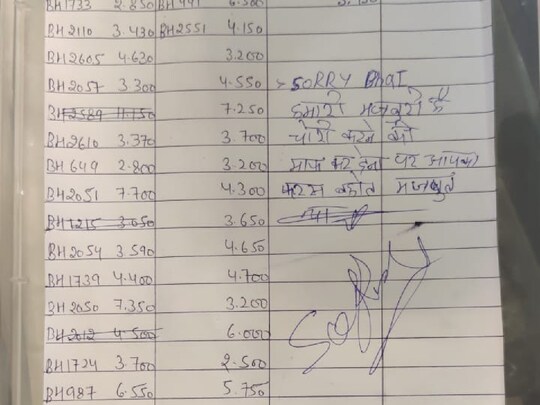 BH1733 2.850 BH991 6.500
BH2110 3.430 BH2551 4.150
BH2605 4.630 3.200
BH2057 3.300 4.550 SORRY BhaI
BH2589 11.150 7.250 हमारी मजबूरी है
BH2610 3.370 3.700 चोरी करने की
BH649 2.800 3.200 माफ कर देना पर आपका
BH2051 7.700 4.300 बहोत मजबुत
BH1215 3.050 3.650 था
BH2054 3.590 4.650
BH1739 4.400 4.700
BH2050 7.350 3.200
BH2012 4.500 6.000
BH1724 3.700 2.500
BH987 6.550 5.750
Sorry